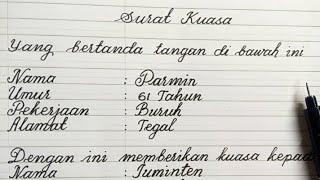 Surat Kuasa
Yang bertanda tangan di bawah ini
Nama : Parmin
Umur : 61 Tahun
Pekerjaan : Buruh
Alamat : Tegal
Dengan ini memberikan kuasa kepad
Nama : Juminten